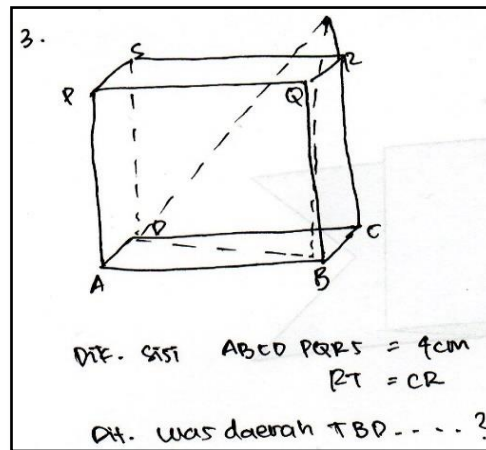 3.
S
R
P
Q
D
C
A
B
Dik. Sisi ABCD PQRS = 4cm
RT = CR
Dit. Luas daerah TBD ....?